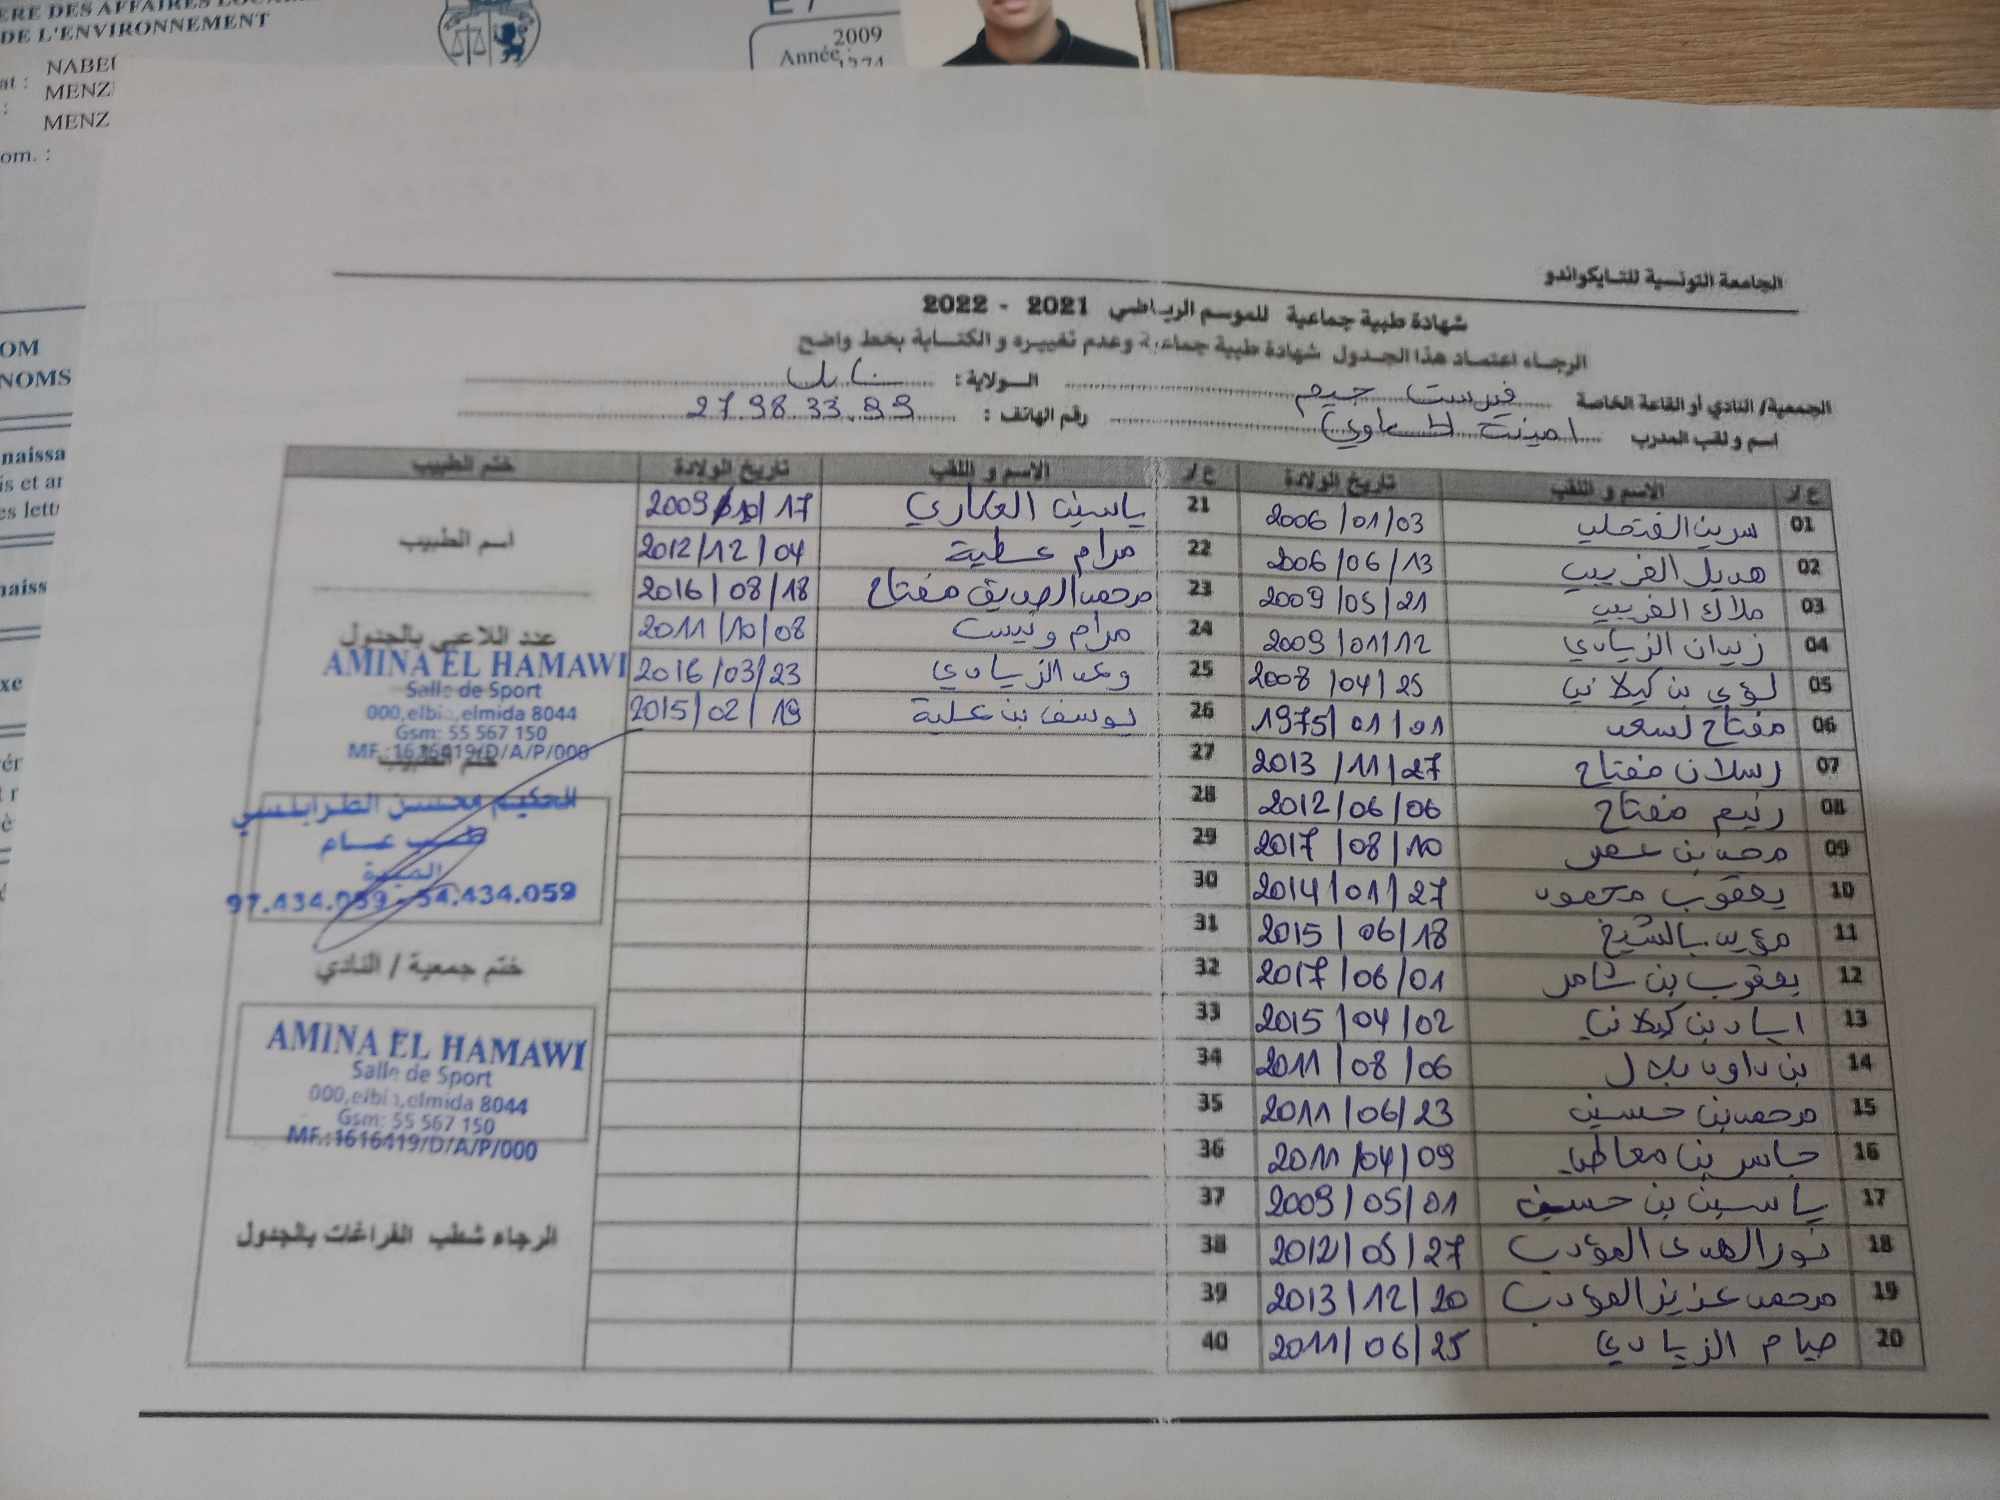 DE L'ENVIRONNEMENT
NABEL
MENZ
MENZ
2009
Année :
OM
NOMS
naissa
الجامعة التونسية للتايكواندو
شهادة طبية جماعية للموسم الرياضي 2021 - 2022
الرجاء اعتماد هذا الجدول شهادة طبية جماعية وعدم تغييره و الكتابة بخط واضح
الجمعية/ النادي أو القاعة الخاصة فيرست جيم الولاية : نابل
اسم و لقب المدرب امينة الحماوي رقم الهاتف : 27.98.33.99
ع/ر الاسم و اللقب تاريخ الولادة ع/ر الاسم و اللقب تاريخ الولادة ختم الطبيب
01 سرين الفتحلي 2006/01/03
02 هديل الغريبي 2006/06/13
03 ملاك الغريبي 2009/05/21
04 زيدان الزيادي 2009/01/12
05 لؤي بن كيلاني 2008/04/25
06 مفتاح لسعد 1975/01/01
07 رسلان مفتاح 2013/11/27
08 رنيم مفتاح 2012/06/06
09 محمد بن عمر 2017/08/10
10 يعقوب محمود 2014/01/27
11 مؤيد بالشيخ 2015/06/18
12 يعقوب بن شامر 2017/06/01
13 اياد بن كيلاني 2015/04/02
14 بن داود بلال 2011/08/06
15 محمد بن حسين 2011/06/23
16 جاسر بن معاطي 2011/04/09
17 ياسين بن حسين 2009/05/01
18 نور الهدى المؤدب 2012/05/27
19 محمد عزيز المؤدب 2013/12/20
20 صيام الزيادي 2011/06/25
21 ياسين العكاري 2009/10/17
22 مرام عطية 2012/12/04
23 محمد الصديق مفتاح 2016/08/18
24 مرام ونيس 2011/10/08
25 وعد الزيادي 2016/03/23
26 يوسف بن علية 2015/02/19
27
28
29
30
31
32
33
34
35
36
37
38
39
40
اسم الطبيب
عدد اللاعبي بالجدول
AMINA EL HAMAWI
Salle de Sport
000,elbir,elmida 8044
Gsm: 55 567 150
MF.:1616419/D/A/P/000
ختم الطبيب
الحكيم محسن الطرابلسي
طبيب عام
الميدة
97.434.059 - 54.434.059
ختم جمعية / النادي
AMINA EL HAMAWI
Salle de Sport
000,elbir,elmida 8044
Gsm: 55 567 150
MF.:1616419/D/A/P/000
الرجاء شطب الفراغات بالجدول